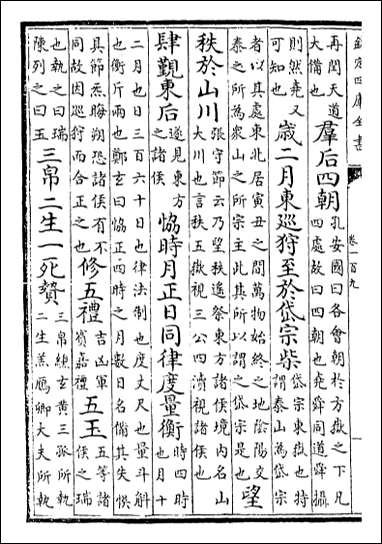 欽定四庫全書
卷一百九
再閏天道
大備也
羣后四朝
孔安國曰各會朝於方嶽之下凡
四處故曰四朝也堯舜同道舜攝
則然堯又
可知也
歲二月東巡狩至於岱宗柴
岱宗東嶽也特
謂泰山為岱宗
者以其處東北居寅丑之間萬物始終之地陰陽交
泰之所為衆山之所宗主此其所以謂之岱宗是也
望
秩於山川
張守節云乃望秩遥祭東方諸侯境内名山
大川也言秩五嶽視三公四瀆視諸侯也
肆覲東后
遂見東方
之諸侯
協時月正日同律度量衡
時四時
也月十
二月也日三百六十日也律法制也度丈尺也量斗斛
也衡斤兩也鄭玄曰恊正四時之月數日名備其失悞
其節氣晦朔恐諸侯有不
同故因巡狩而合正之也
修五禮
吉凶軍
賔嘉禮
五玉
五等諸
侯之瑞
也執之曰瑞
陳列之曰玉
三帛二生一死贄
三帛纁玄黄三孤所執
二生羔鴈卿大夫所執